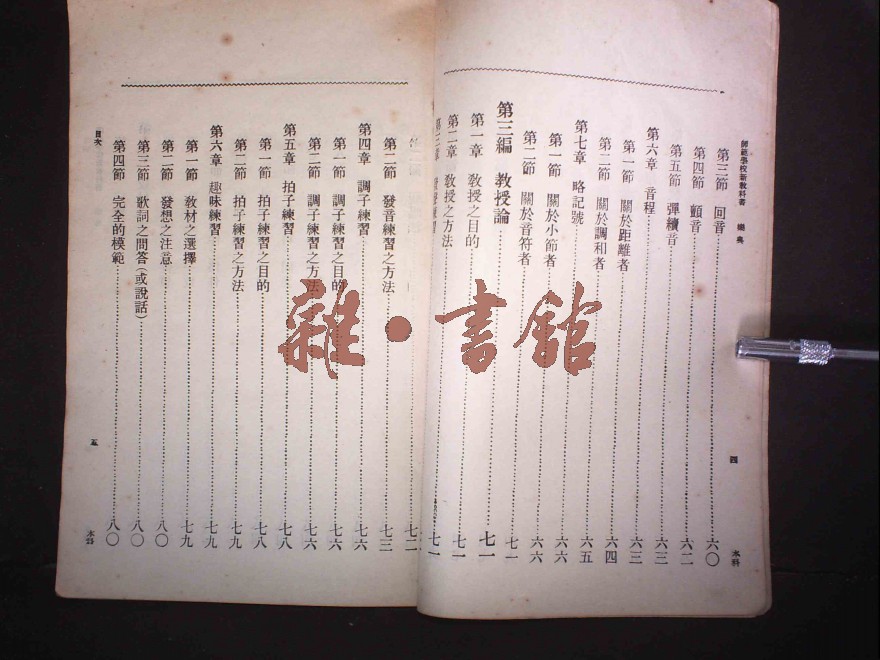 師範學校新教科書 樂典 四 本科
第三節 回音 六〇
第四節 顫音 六二
第五節 彈續音 六三
第六章 音程 六三
第一節 關於距離者 六四
第二節 關於調和者 六五
第七章 略記號 六六
第一節 關於小節者 六六
第二節 關於音符者 七一
第三編 教授論 七一
第一章 教授之目的 七一
第二章 教授之方法 七一
第三章
七二
第二節 發音練習之方法 七三
第四章 調子練習 七六
第一節 調子練習之目的 七六
第二節 調子練習之方法 七六
第五章 拍子練習 七八
第一節 拍子練習之目的 七八
第二節 拍子練習之方法 七九
第六章 趣味練習 七九
第一節 教材之選擇 七九
第二節 發想之注意 八〇
第三節 歌詞之問答(或說話) 八〇
第四節 完全的模範 八〇
目次 五 本科
雜·書館